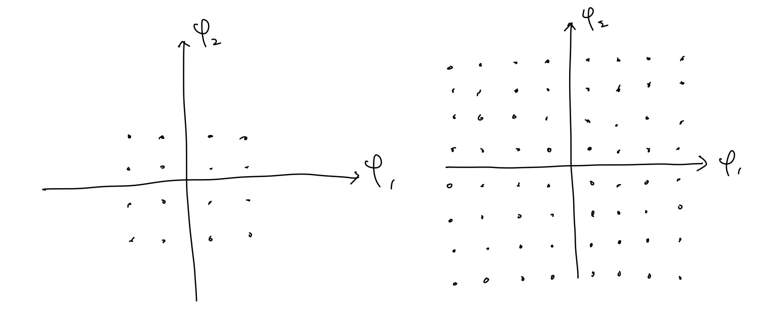 φ₂
φ₁
φ₂
φ₁